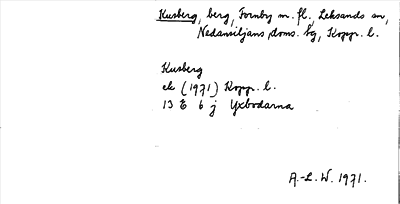 Kusberg, berg, Fornby m. fl., Leksands sn,
Nedansiljans doms. hg, Kopp. l.
Kusberg
ek (1971) Kopp. l.
13 E 6 j Yxbodarna
A.-L. W. 1971.